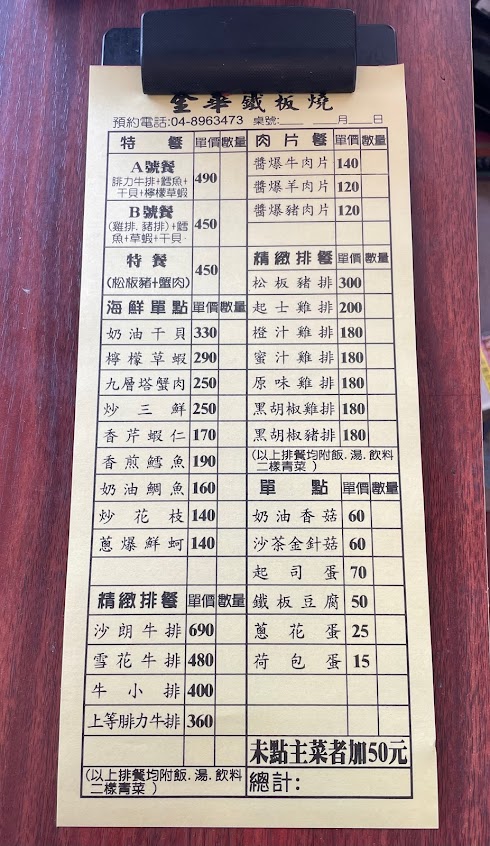 金華鐵板燒
預約電話:04-8963473 桌號:____ ____月____日
特餐 單價 數量
A號餐
腓力牛排+鱈魚+
干貝+檸檬草蝦
490
B號餐
(雞排.豬排)+鱈
魚+草蝦+干貝
450
特餐
(松板豬+蟹肉)
450
海鮮單點 單價 數量
奶油干貝 330
檸檬草蝦 290
九層塔蟹肉 250
炒三鮮 250
香芹蝦仁 170
香煎鱈魚 190
奶油鯛魚 160
炒花枝 140
蔥爆鮮蚵 140
精緻排餐 單價 數量
沙朗牛排 690
雪花牛排 480
牛小排 400
上等腓力牛排 360
(以上排餐均附飯.湯.飲料
二樣青菜)
肉片餐 單價 數量
醬爆牛肉片 140
醬爆羊肉片 120
醬爆豬肉片 120
精緻排餐 單價 數量
松板豬排 300
起士雞排 200
橙汁雞排 180
蜜汁雞排 180
原味雞排 180
黑胡椒雞排 180
黑胡椒豬排 180
(以上排餐均附飯.湯.飲料
二樣青菜)
單點 單價 數量
奶油香菇 60
沙茶金針菇 60
起司蛋 70
鐵板豆腐 50
蔥花蛋 25
荷包蛋 15
未點主菜者加50元
總計: